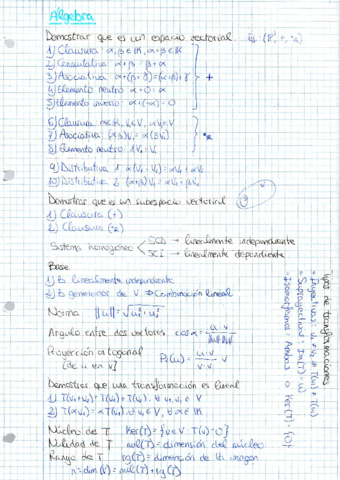 Álgebra
Demostrar que es un espacio vectorial. Ej: (ℝ², +, ·ℝ)
1) Clausura: α,β ∈ ℝ, α+β ∈ ℝ
2) Conmutativa α+β = β+α
3) Asociativa α+(β+γ)=(α+β)+γ
4) Elemento neutro α+0=α
5) Elemento inverso α+(-α)=0
+
6) Clausura: α∈ℝ, V₁∈V, αV₁∈V
7) Asociativa: (αβ)V₁ = α(βV₁)
8) Elemento neutro: 1V₁ = V₁
9) Distributiva 1 α(V₁+V₂) = αV₁+αV₂
10) Distributiva 2 (α+β)V₁ = αV₁+βV₁
Demostrar que es un subespacio vectorial
1) Clausura (+)
2) Clausura (·ℝ)
Sistema homogéneo
SCD → linealmente independiente
SCI → linealmente dependiente
Base
1) Es linealmente independiente
2) Es generador de V ⇒ Combinación lineal
Norma ||u|| = √u₁²+u₂²
Angulo entre dos vectores cos α = u·v / ||u||·||v||
Proyección ortogonal [de u en v] Pv(u) = u·v / v·v · v
Demostrar que una transformación es lineal
1) T(v₁+v₂) = T(v₁)+T(v₂). ∀ v₁,v₂ ∈ V
2) T(αv₁) = αT(v₁) ∀ v₁ ∈ V, ∀ α ∈ ℝ
Núcleo de T Ker(T) = {v∈V T(v)=0}
Nulidad de T nul(T) = dimensión del núcleo
Rango de T rg(T) = dimensión de la imagen
n = dim(V) = nul(T) + rg(T)
Tipos de transformaciones
Inyectivas: v₁ ≠ v₂ ⇒ T(v₁) ≠ T(v₂)
Suprayectivas: Im(T) = W
Isomorfismos: Ambas o Ker(T) = {0}